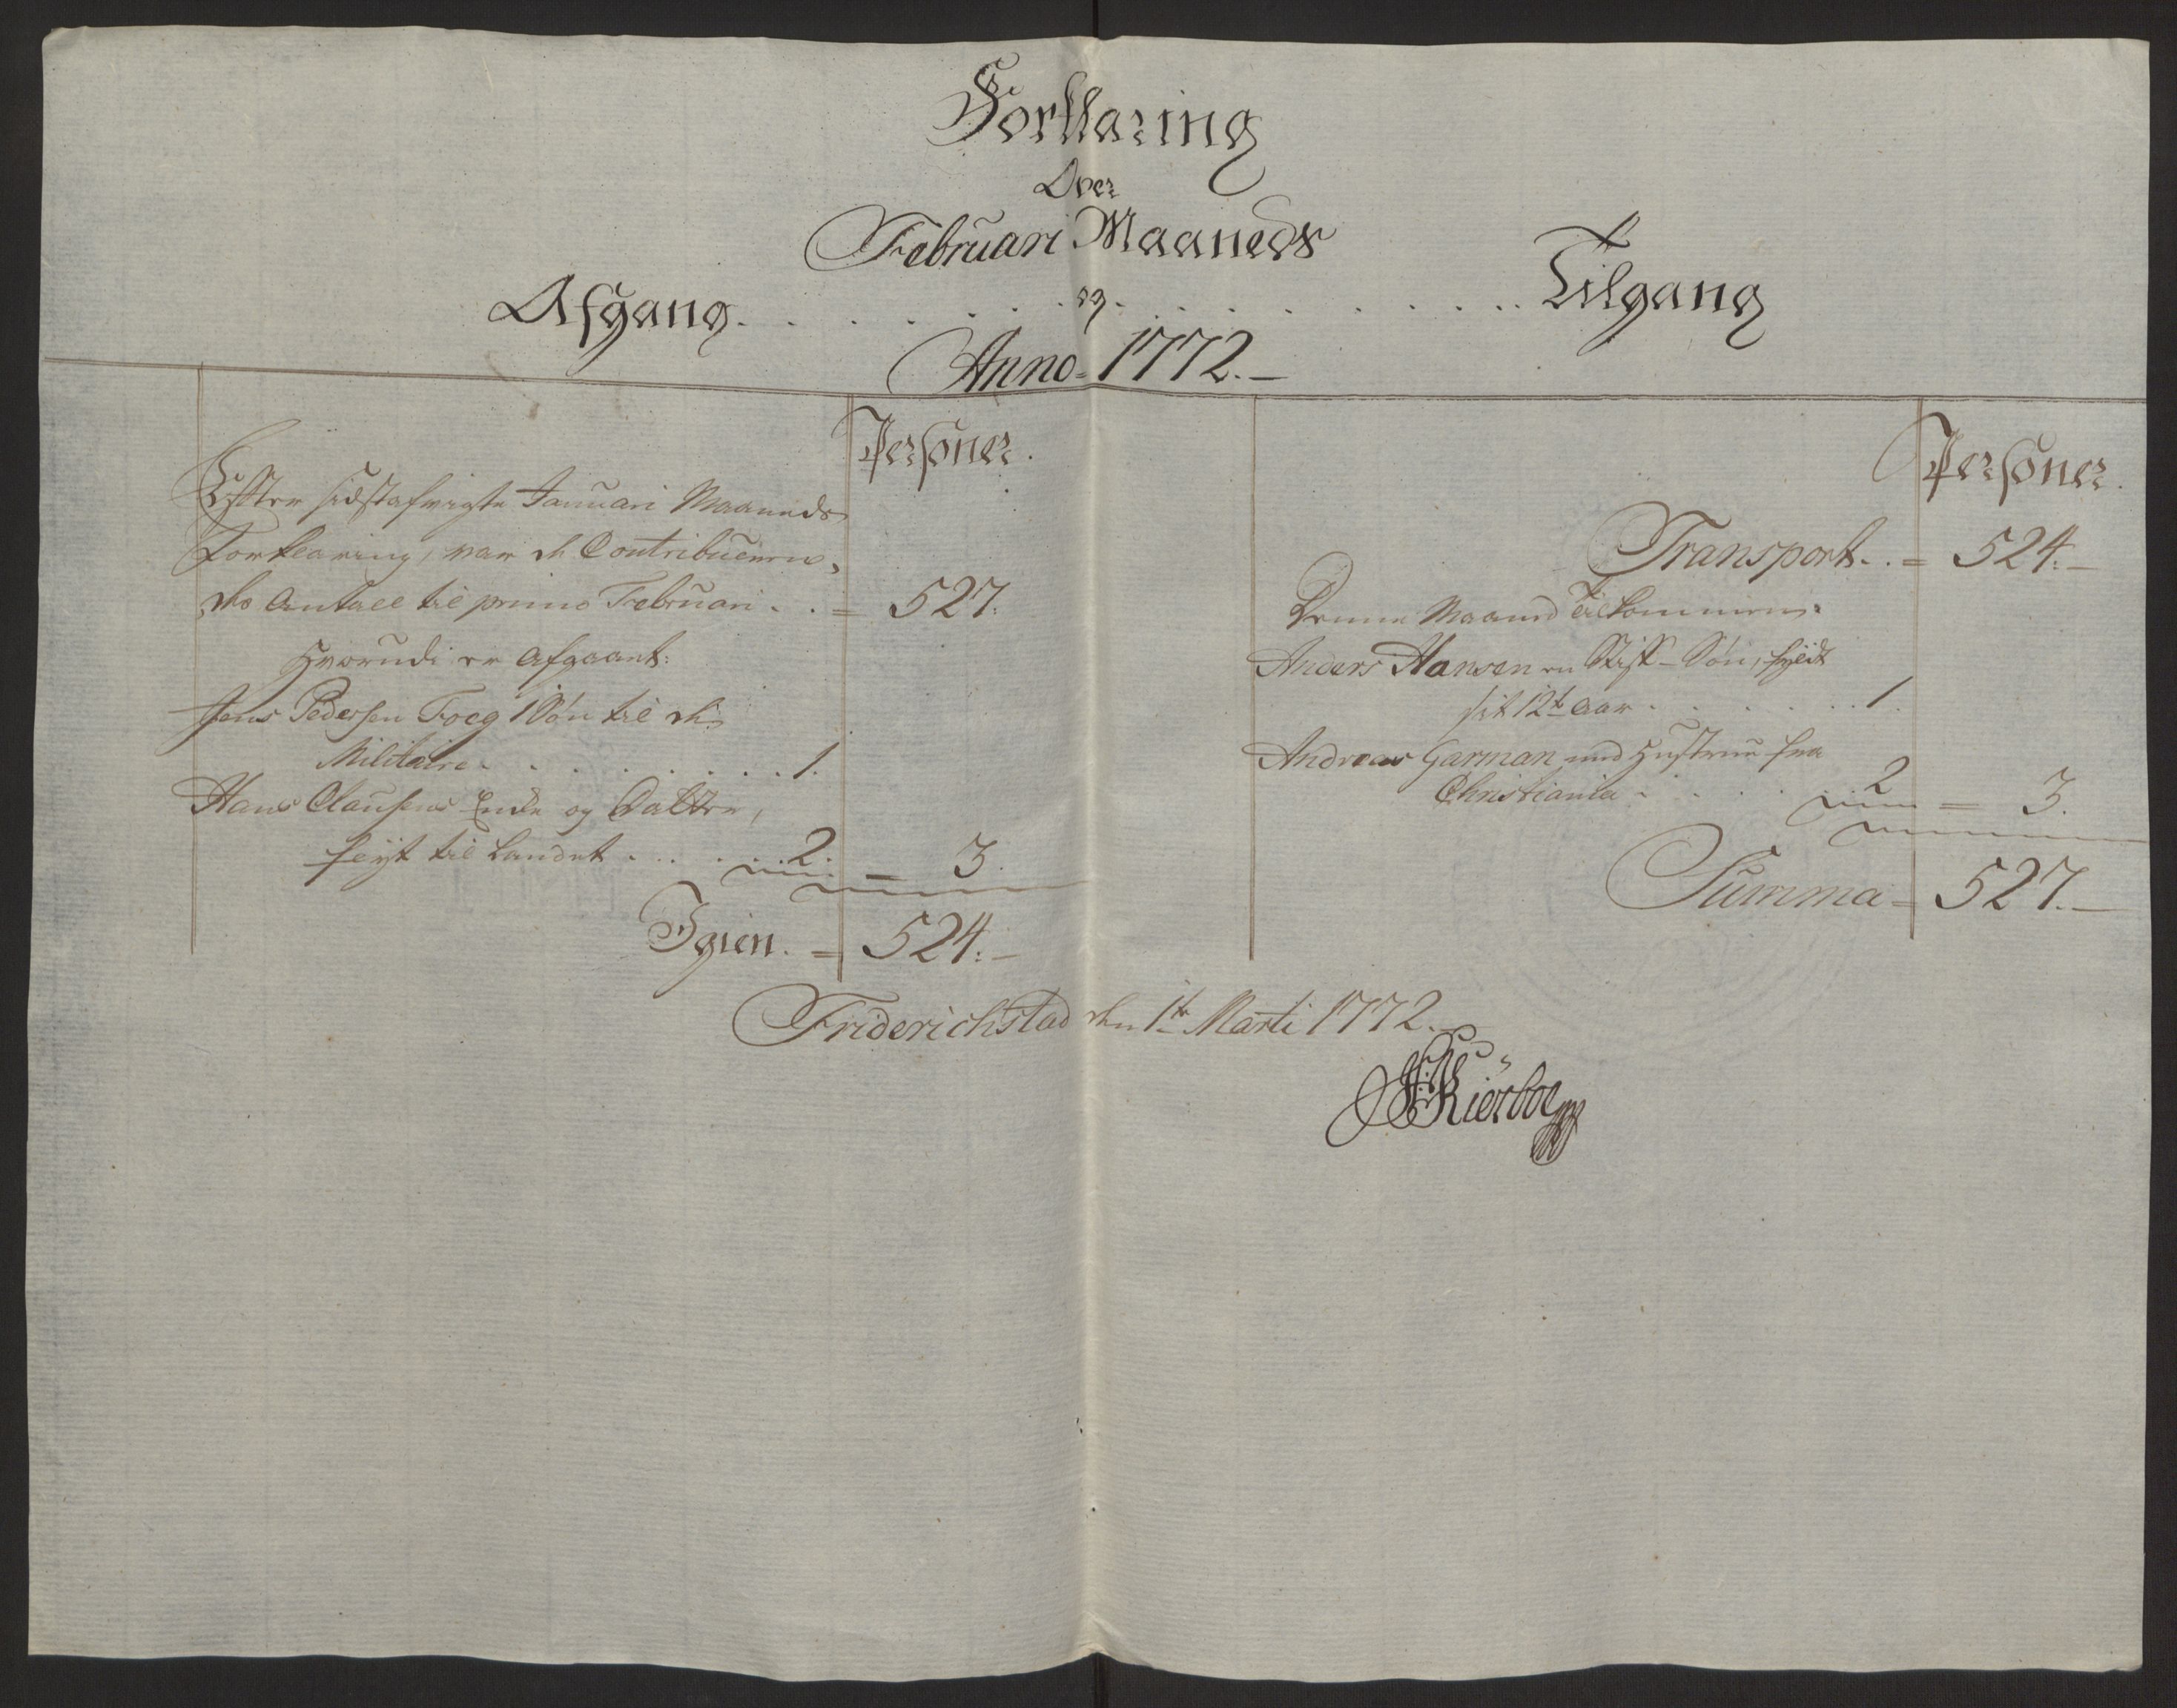 Forklaring
Over
Februari Maaneds
Afgang. . . . . . . og . . . . . . . . Tilgang
Anno 1772.
Personer.
Efter sidstafvigte Januari Maaneds
Forklaring, var de Contribueren-
des Antall til primo Februari . . = 527.
Hvorudi er afgaaet:
Jens Pedersen Foeg 1 Søn til de
Militaire . . . . . . . . . 1.
Hans Clausens Enke og Datter,
fløt til Landet . . . . . 2. = 3.
Igien. = 524.
Personer.
Transport. . = 524.
Denne Maaned Tilkommen:
Anders Hansen en Stif-Søn, fyldt
sit 12te Aar . . . . . . 1.
Andreas Garman med Hustrue fra
Christiania . . . . 2 = 3.
Summa = 527.
Friderichstad den 1te Marti 1772.
Kierboe